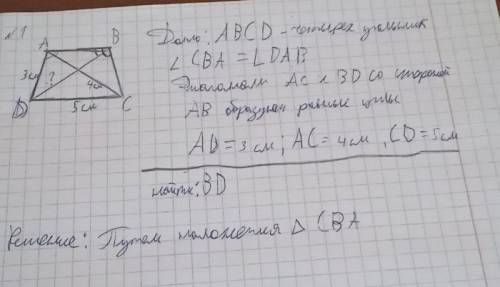 №1
A B
3см ? 4см
D C
5см
Дано: ABCD - четырех угольник
∠CBA = ∠DAB
Диагонали AC и BD со стороной
AB образуют равные углы
AD = 3 см; AC = 4 см, CD = 5 см
найти: BD
Решение: Путем наложения △ CBA